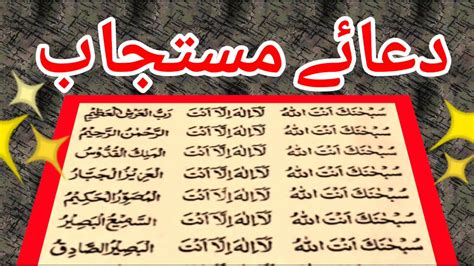 دعائے مستجاب
سُبْحٰنَكَ اَنْتَ اللهُ لَآ اِلٰهَ اِلَّآ اَنْتَ رَبُّ الْعَرْشِ الْعَظِيْمِ
سُبْحٰنَكَ اَنْتَ اللهُ لَآ اِلٰهَ اِلَّآ اَنْتَ الرَّحْمٰنُ الرَّحِيْمُ
سُبْحٰنَكَ اَنْتَ اللهُ لَآ اِلٰهَ اِلَّآ اَنْتَ الْمَلِكُ الْقُدُّوْسُ
سُبْحٰنَكَ اَنْتَ اللهُ لَآ اِلٰهَ اِلَّآ اَنْتَ الْعَزِيْزُ الْجَبَّارُ
سُبْحٰنَكَ اَنْتَ اللهُ لَآ اِلٰهَ اِلَّآ اَنْتَ الْمُصَوِّرُ الْحَكِيْمُ
سُبْحٰنَكَ اَنْتَ اللهُ لَآ اِلٰهَ اِلَّآ اَنْتَ السَّمِيْعُ الْبَصِيْرُ
سُبْحٰنَكَ اَنْتَ اللهُ لَآ اِلٰهَ اِلَّآ اَنْتَ الْبَصِيْرُ الصَّادِقُ